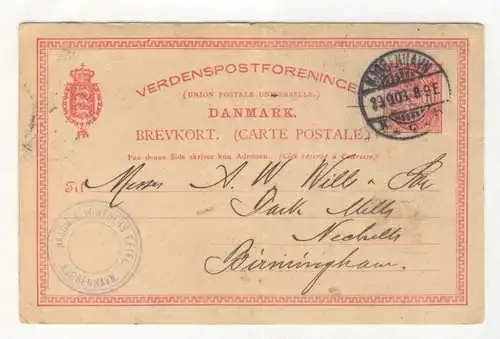 VERDENSPOSTFORENINGEN
(UNION POSTALE UNIVERSELLE.)
DANMARK.
BREVKORT. (CARTE POSTALE.)
Paa denne Side skrives kun Adressen. (Côté réservé à l'adresse.)
KJØBENHAVN
8-9 E
K
Til
Messrs A. W. Wills & So
Park Mills
Nechells
Birmingham.
KJØBENHAVN